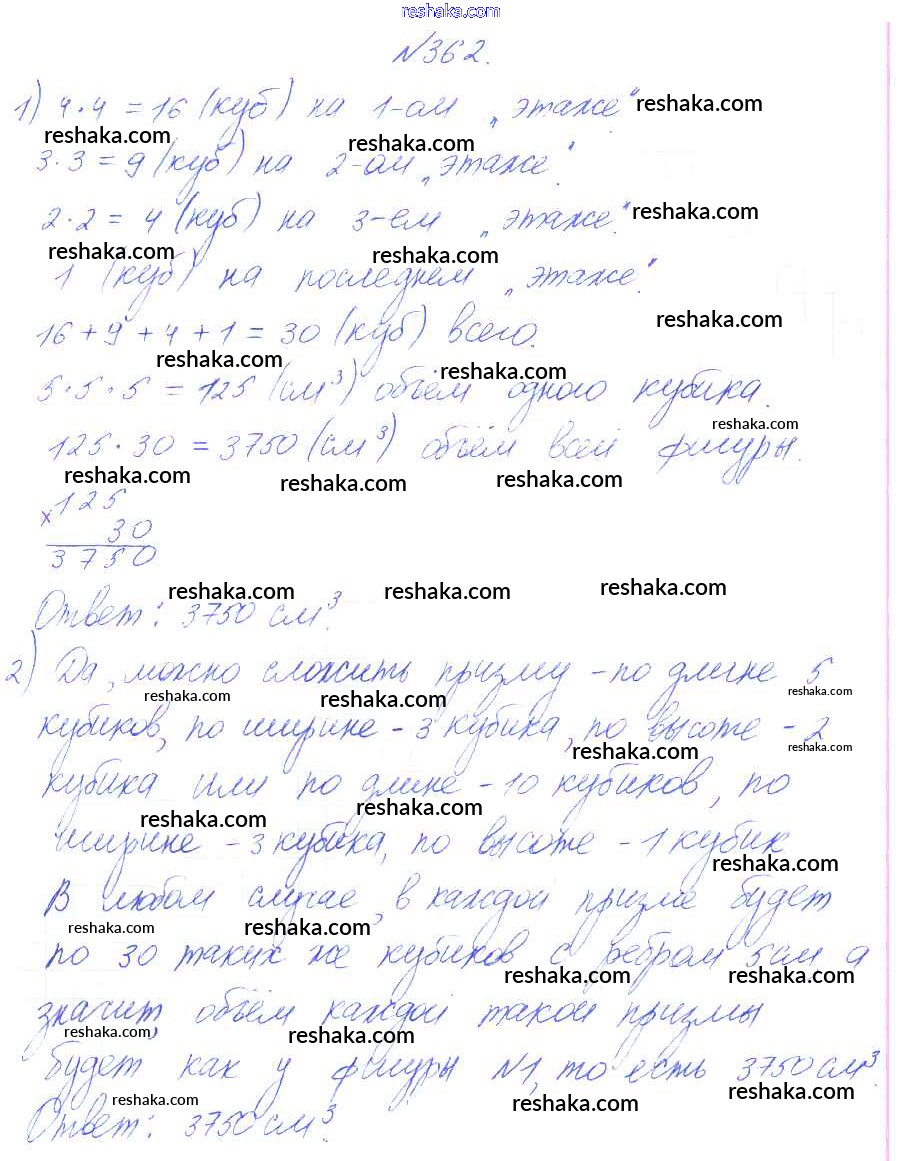 reshaka.com
№362.
1) 4·4 = 16 (куб) на 1-ом „этаже" reshaka.com
reshaka.com reshaka.com
3·3 = 9 (куб) на 2-ом „этаже".
2·2 = 4 (куб) на 3-ем „этаже". reshaka.com
reshaka.com reshaka.com
1 (куб) на последнем „этаже".
16 + 9 + 4 + 1 = 30 (куб) всего. reshaka.com
reshaka.com reshaka.com
5·5·5 = 125 (см³) объём одного кубика.
reshaka.com
125·30 = 3750 (см³) объём всей фигуры.
reshaka.com reshaka.com reshaka.com
× 125
30
3750
reshaka.com reshaka.com reshaka.com
Ответ: 3750 см³.
2) Да, можно сложить призму - по длине 5
reshaka.com reshaka.com reshaka.com
кубиков, по ширине - 3 кубика, по высоте - 2
reshaka.com reshaka.com
кубика или по длине - 10 кубиков, по
reshaka.com reshaka.com
ширине - 3 кубика, по высоте - 1 кубик
reshaka.com
В любом случае, в каждой призме будет
reshaka.com reshaka.com
по 30 таких же кубиков с ребром 5 см а
reshaka.com reshaka.com
значит, объём каждой такой призмы
reshaka.com reshaka.com
будет как у фигуры №1, то есть 3750 см³.
reshaka.com reshaka.com reshaka.com
Ответ: 3750 см³.